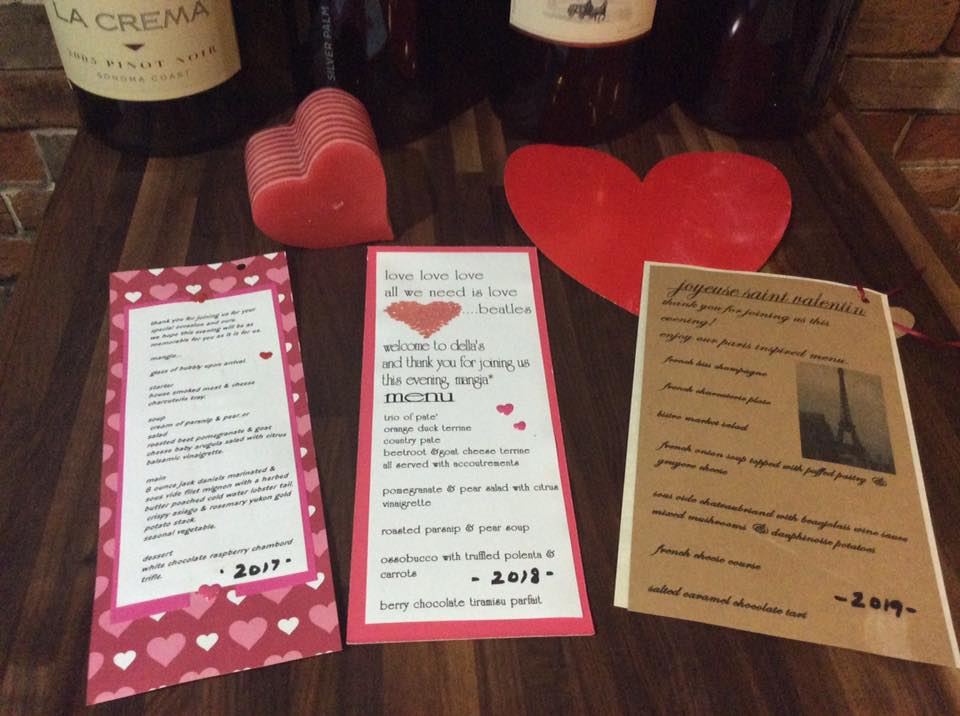 LA CREMA
2005 PINOT NOIR
SONOMA COAST
SILVER PALM
thank you for joining us for your
special occasion and cure.
we hope this evening will be as
memorable for you as it is for us.
mangia...
glass of bubbly upon arrival.
starter
house smoked meat & cheese
charcuterie tray.
soup
cream of parsnip & pear.or
salad
roasted beet pomegranate & goat
cheese baby arugula salad with citrus
balsamic vinaigrette.
main
8 ounce jack daniels marinated &
sous vide filet mignon with a herbed
butter poached cold water lobster tail.
crispy asiago & rosemary yukon gold
potato stack.
seasonal vegetable.
dessert
white chocolate raspberry chambord
trifle.
- 2017 -
love love love
all we need is love
....beatles
welcome to della's
and thank you for joining us
this evening, mangia*
menu
trio of pate'
orange duck terrine
country pate
beetroot &goat cheese terrine
all served with accoutrements
pomegranate & pear salad with citrus
vinaigrette
roasted parsnip & pear soup
ossobucco with truffled polenta &
carrots
- 2018 -
berry chocolate tiramisu parfait
joyeuse saint valentin
thank you for joining us this
evening!
enjoy our paris inspired menu.
french kiss champagne
french charcuterie plate
bistro market salad
french onion soup topped with puffed pastry &
gruyere cheese
sous vide chateaubriand with beaujolais wine sauce
mixed mushrooms & dauphinoise potatoes
french cheese course
salted caramel chocolate tart
-2019-